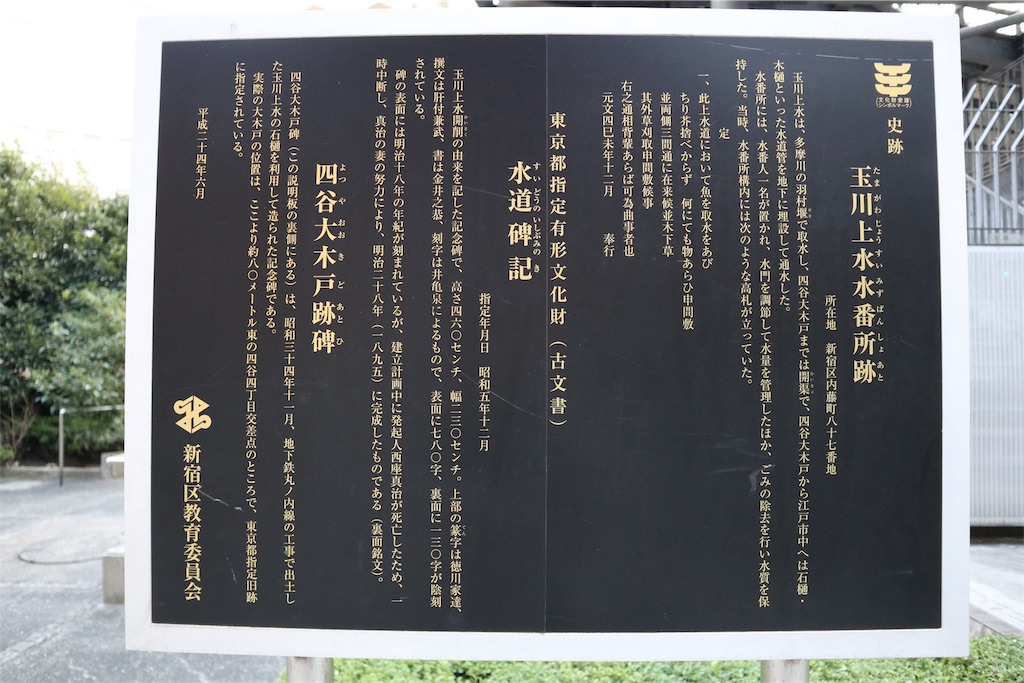 文化財愛護
シンボルマーク
史跡
玉川上水水番所跡
たまがわじょうすいみずばんしょあと
所在地　新宿区内藤町八十七番地
玉川上水は、多摩川の羽村堰で取水し、四谷大木戸までは開渠で、四谷大木戸から江戸市中へは石樋・
木樋といった水道管を地下に埋設して通水した。
水番所には、水番人一名が置かれ、水門を調節して水量を管理したほか、ごみの除去を行い水質を保
持した。当時、水番所構内には次のような高札が立っていた。
定
一、此上水道において魚を取水をあび
ちり芥捨べからず　何にても物あらひ申間敷
並両側三間通に在来候並木下草
其外草刈取申間敷候事
右之通相背輩あらば可為曲事者也
元文四巳未年十二月　　奉行
東京都指定有形文化財（古文書）
水道碑記
すいどうのいしぶみのき
指定年月日　昭和五年十二月
玉川上水開削の由来を記した記念碑で、高さ四六〇センチ、幅二三〇センチ。上部の篆字は徳川家達、
撰文は肝付兼武、書は金井之恭、刻字は井亀泉によるもので、表面に七八〇字、裏面に一三〇字が陰刻
されている。
碑の表面には明治十八年の年紀が刻まれているが、建立計画中に発起人西座真治が死亡したため、一
時中断し、真治の妻の努力により、明治二十八年（一八九五）に完成したものである（裏面銘文）。
四谷大木戸跡碑
よつやおおきどあとひ
四谷大木戸碑（この説明板の裏側にある）は、昭和三十四年十一月、地下鉄丸ノ内線の工事で出土し
た玉川上水の石樋を利用して造られた記念碑である。
実際の大木戸の位置は、ここより約八〇メートル東の四谷四丁目交差点のところで、東京都指定旧跡
に指定されている。
平成二十四年六月
新宿区教育委員会